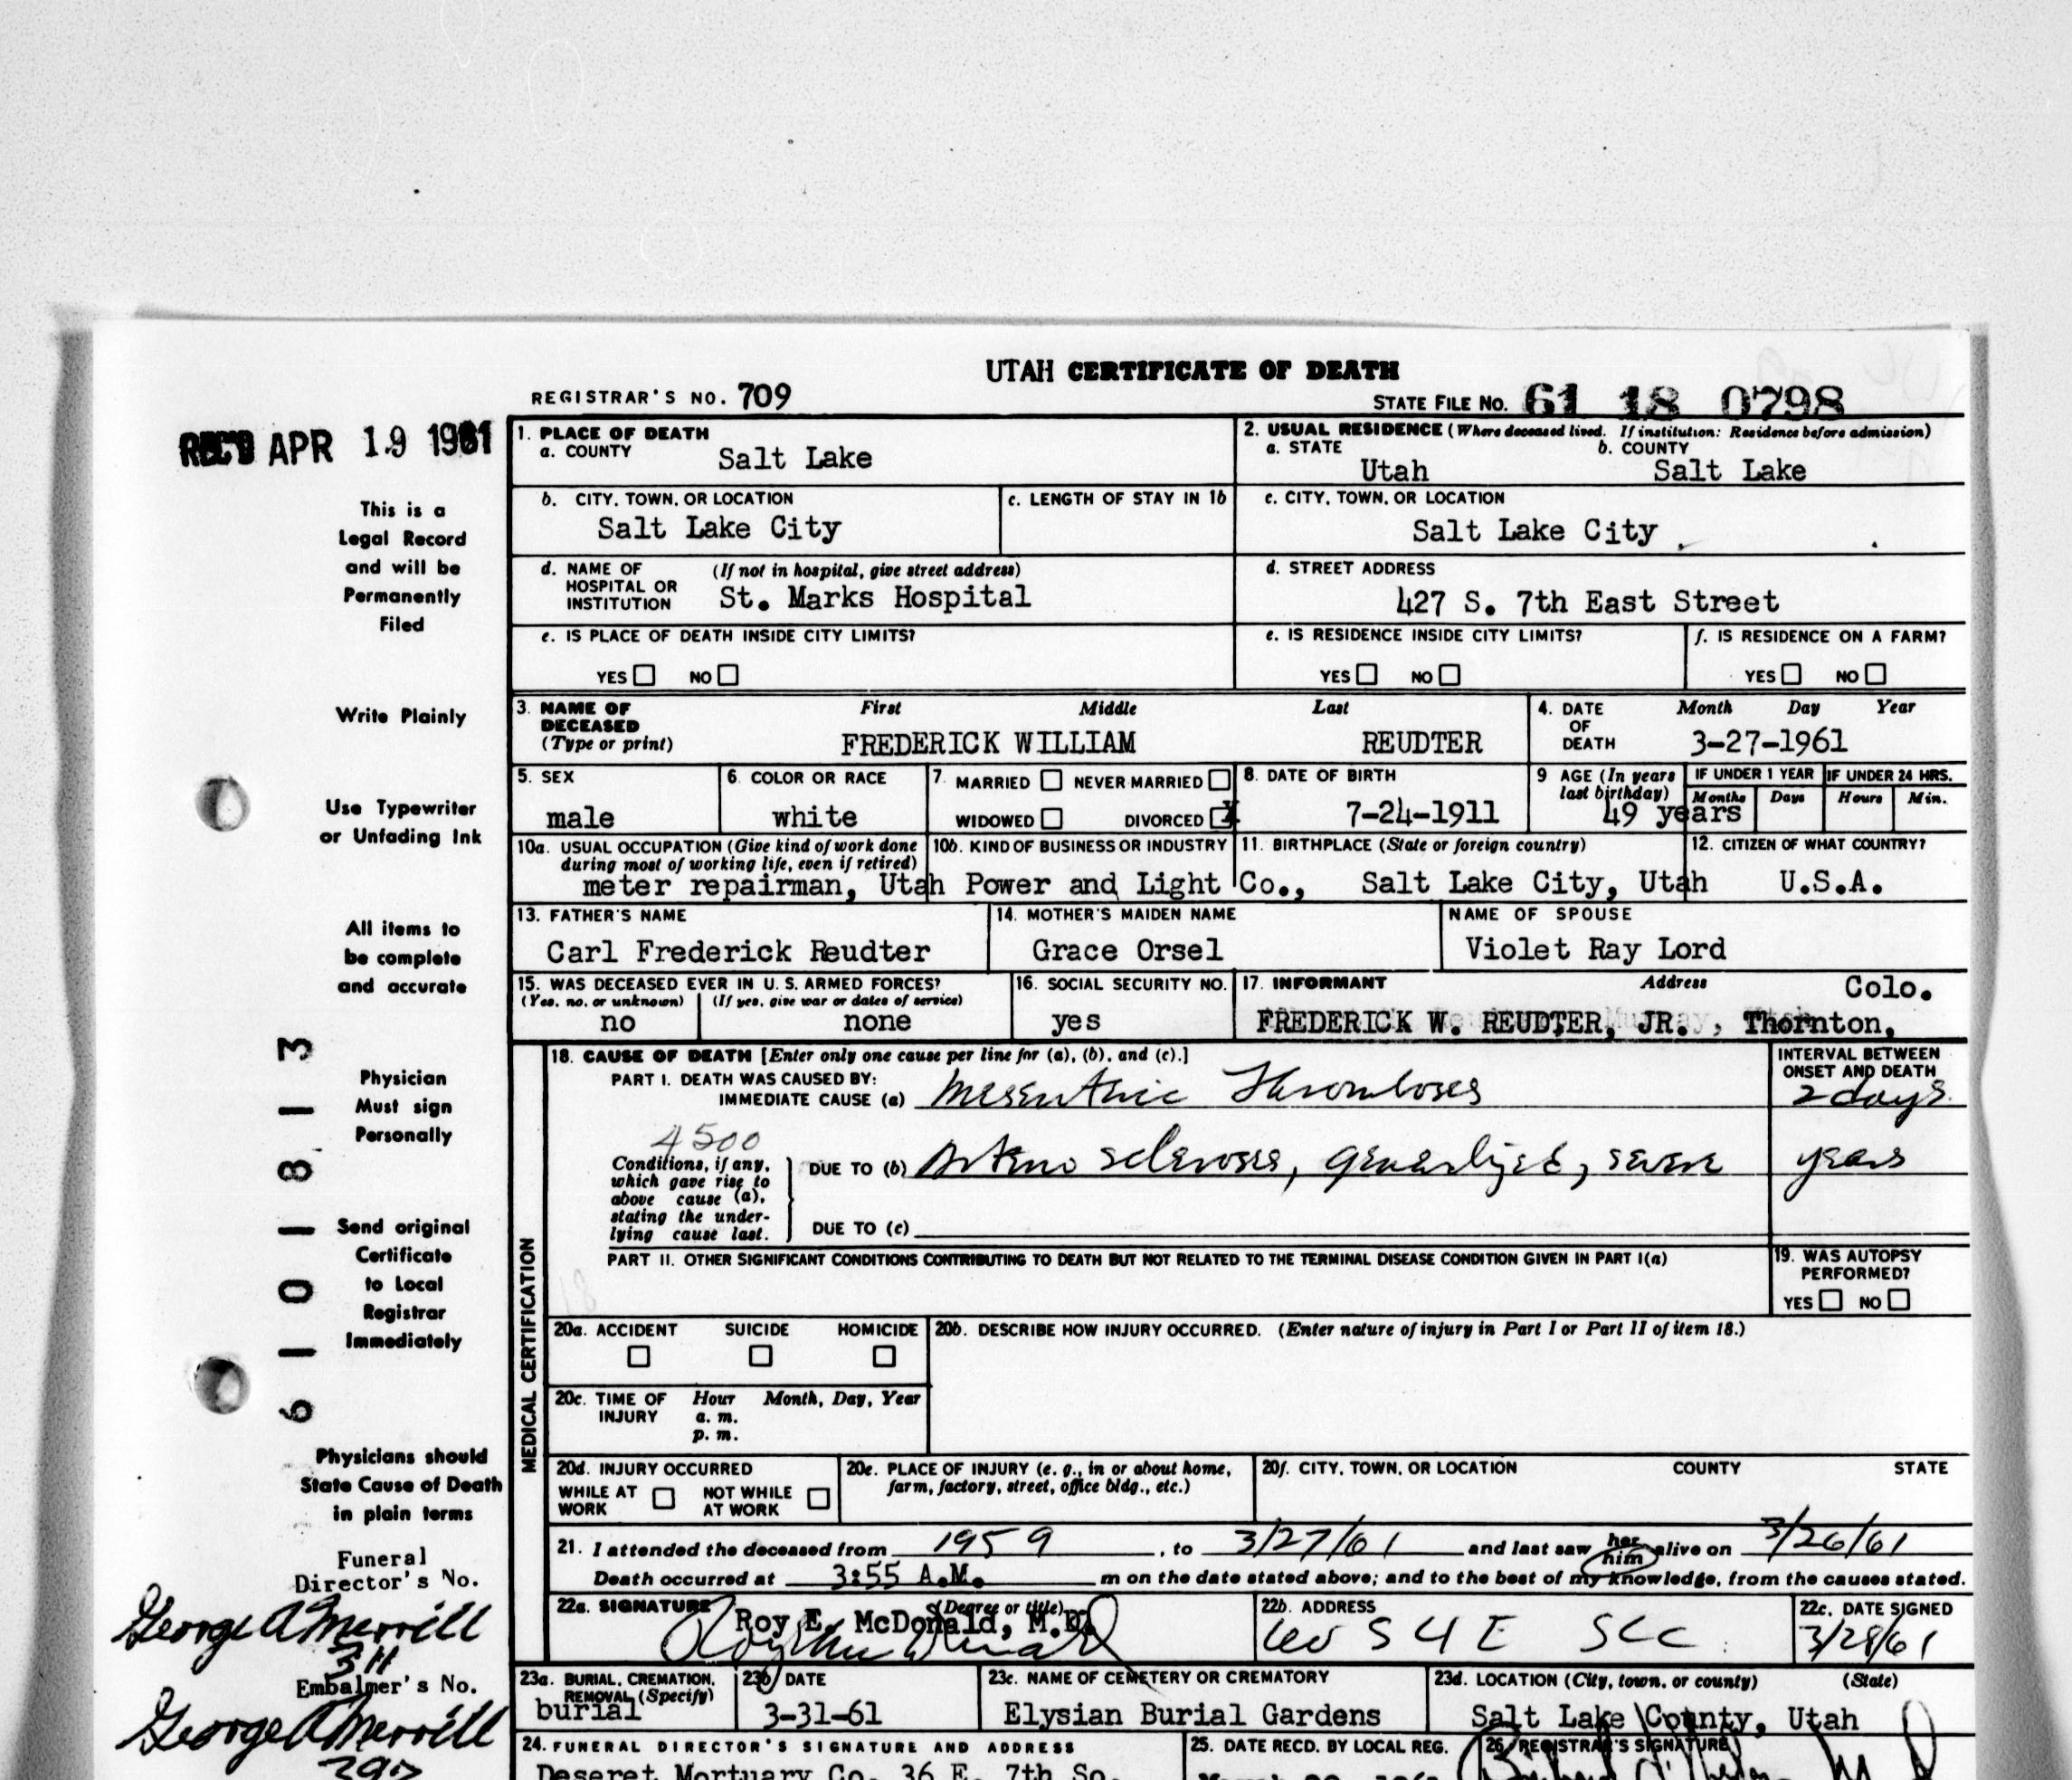 UTAH CERTIFICATE OF DEATH
REGISTRAR'S NO. 709
STATE FILE NO. 61 18 0798
REC'D APR 19 1961
This is a
Legal Record
and will be
Permanently
Filed
Write Plainly
Use Typewriter
or Unfading Ink
All items to
be complete
and accurate
Physician
Must sign
Personally
Send original
Certificate
to Local
Registrar
Immediately
Physicians should
State Cause of Death
in plain terms
61018 13
Funeral
Director's No.
George A Merrill
311
Embalmer's No.
George A Merrill
397
1. PLACE OF DEATH
a. COUNTY Salt Lake
2. USUAL RESIDENCE (Where deceased lived. If institution: Residence before admission)
a. STATE Utah b. COUNTY Salt Lake
b. CITY, TOWN, OR LOCATION Salt Lake City
c. LENGTH OF STAY IN 1b
c. CITY, TOWN, OR LOCATION Salt Lake City
d. NAME OF HOSPITAL OR INSTITUTION (If not in hospital, give street address) St. Marks Hospital
d. STREET ADDRESS 427 S. 7th East Street
e. IS PLACE OF DEATH INSIDE CITY LIMITS?
YES NO
e. IS RESIDENCE INSIDE CITY LIMITS?
YES NO
f. IS RESIDENCE ON A FARM?
YES NO
3. NAME OF DECEASED (Type or print) First Middle Last
FREDERICK WILLIAM REUDTER
4. DATE OF DEATH Month Day Year
3-27-1961
5. SEX male
6. COLOR OR RACE white
7. MARRIED NEVER MARRIED
WIDOWED DIVORCED X
8. DATE OF BIRTH 7-24-1911
9 AGE (In years last birthday) 49 years
IF UNDER 1 YEAR Months Days
IF UNDER 24 HRS. Hours Min.
10a. USUAL OCCUPATION (Give kind of work done during most of working life, even if retired)
10b. KIND OF BUSINESS OR INDUSTRY
meter repairman, Utah Power and Light Co.,
11. BIRTHPLACE (State or foreign country) Salt Lake City, Utah
12. CITIZEN OF WHAT COUNTRY? U.S.A.
13. FATHER'S NAME Carl Frederick Reudter
14. MOTHER'S MAIDEN NAME Grace Orsel
NAME OF SPOUSE Violet Ray Lord
15. WAS DECEASED EVER IN U. S. ARMED FORCES?
(Yes, no. or unknown) (If yes, give war or dates of service)
no none
16. SOCIAL SECURITY NO. yes
17. INFORMANT Address Colo.
FREDERICK W. REUDTER, JR., Thornton,
18. CAUSE OF DEATH [Enter only one cause per line for (a), (b), and (c).]
INTERVAL BETWEEN ONSET AND DEATH
PART I. DEATH WAS CAUSED BY:
IMMEDIATE CAUSE (a) Mesenteric Thromboses 2 days
4500
Conditions, if any, which gave rise to above cause (a), stating the underlying cause last.
DUE TO (b) Arterio sclerosis, generalized, severe years
DUE TO (c)
PART II. OTHER SIGNIFICANT CONDITIONS CONTRIBUTING TO DEATH BUT NOT RELATED TO THE TERMINAL DISEASE CONDITION GIVEN IN PART I(a)
19. WAS AUTOPSY PERFORMED?
YES NO
MEDICAL CERTIFICATION
20a. ACCIDENT SUICIDE HOMICIDE
20b. DESCRIBE HOW INJURY OCCURRED. (Enter nature of injury in Part I or Part II of item 18.)
20c. TIME OF INJURY Hour Month, Day, Year
a. m.
p. m.
20d. INJURY OCCURRED
WHILE AT WORK NOT WHILE AT WORK
20e. PLACE OF INJURY (e. g., in or about home, farm, factory, street, office bldg., etc.)
20f. CITY, TOWN, OR LOCATION COUNTY STATE
21. I attended the deceased from 1959, to 3/27/61 and last saw her him alive on 3/26/61
Death occurred at 3:55 A.M. m on the date stated above; and to the best of my knowledge, from the causes stated.
22a. SIGNATURE (Degree or title) Roy E. McDonald, M.D.
22b. ADDRESS S 4 E SLC
22c. DATE SIGNED 3/28/61
23a. BURIAL, CREMATION, REMOVAL (Specify) burial
23b. DATE 3-31-61
23c. NAME OF CEMETERY OR CREMATORY Elysian Burial Gardens
23d. LOCATION (City, town, or county) (State) Salt Lake County, Utah
24. FUNERAL DIRECTOR'S SIGNATURE AND ADDRESS
Deseret Mortuary Co. 36 E. 7th So.
25. DATE RECD. BY LOCAL REG.
26. REGISTRAR'S SIGNATURE